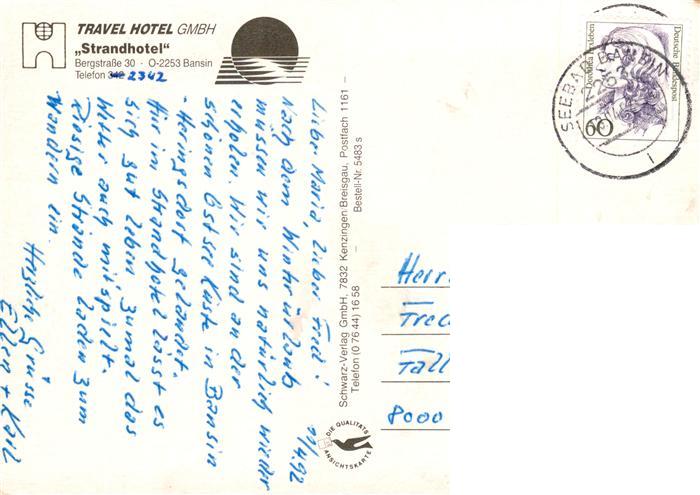 TRAVEL HOTEL GMBH
„Strandhotel"
Bergstraße 30 · O-2253 Bansin
Telefon 342 2342
Liebe Maria, lieber Fred!
20/4.92
Nach dem Winterurlaub
mussen wir uns natürlich wieder
erholen. Wir sind an der
schönen Ostsee Küste in Bansin
- Heringsdorf gelandet.
Hier im Strandhotel lässt es
sich gut leben zumal das
Wetter auch mitspielt.
Riesige Strände laden zum
Wandern ein.
Herzliche Grüsse
Ellen + Karl
Schwarz-Verlag GmbH, 7832 Kenzingen-Breisgau, Postfach 1161 –
Telefon (0 76 44) 16 58 – Bestell-Nr. 5483 s
DIE QUALITÄTS
ANSICHTSKARTE
Deutsche Bundespost
Dorothea Erxleben
60
SEEBAD BANSIN
Herr
Fred
Tall
8000